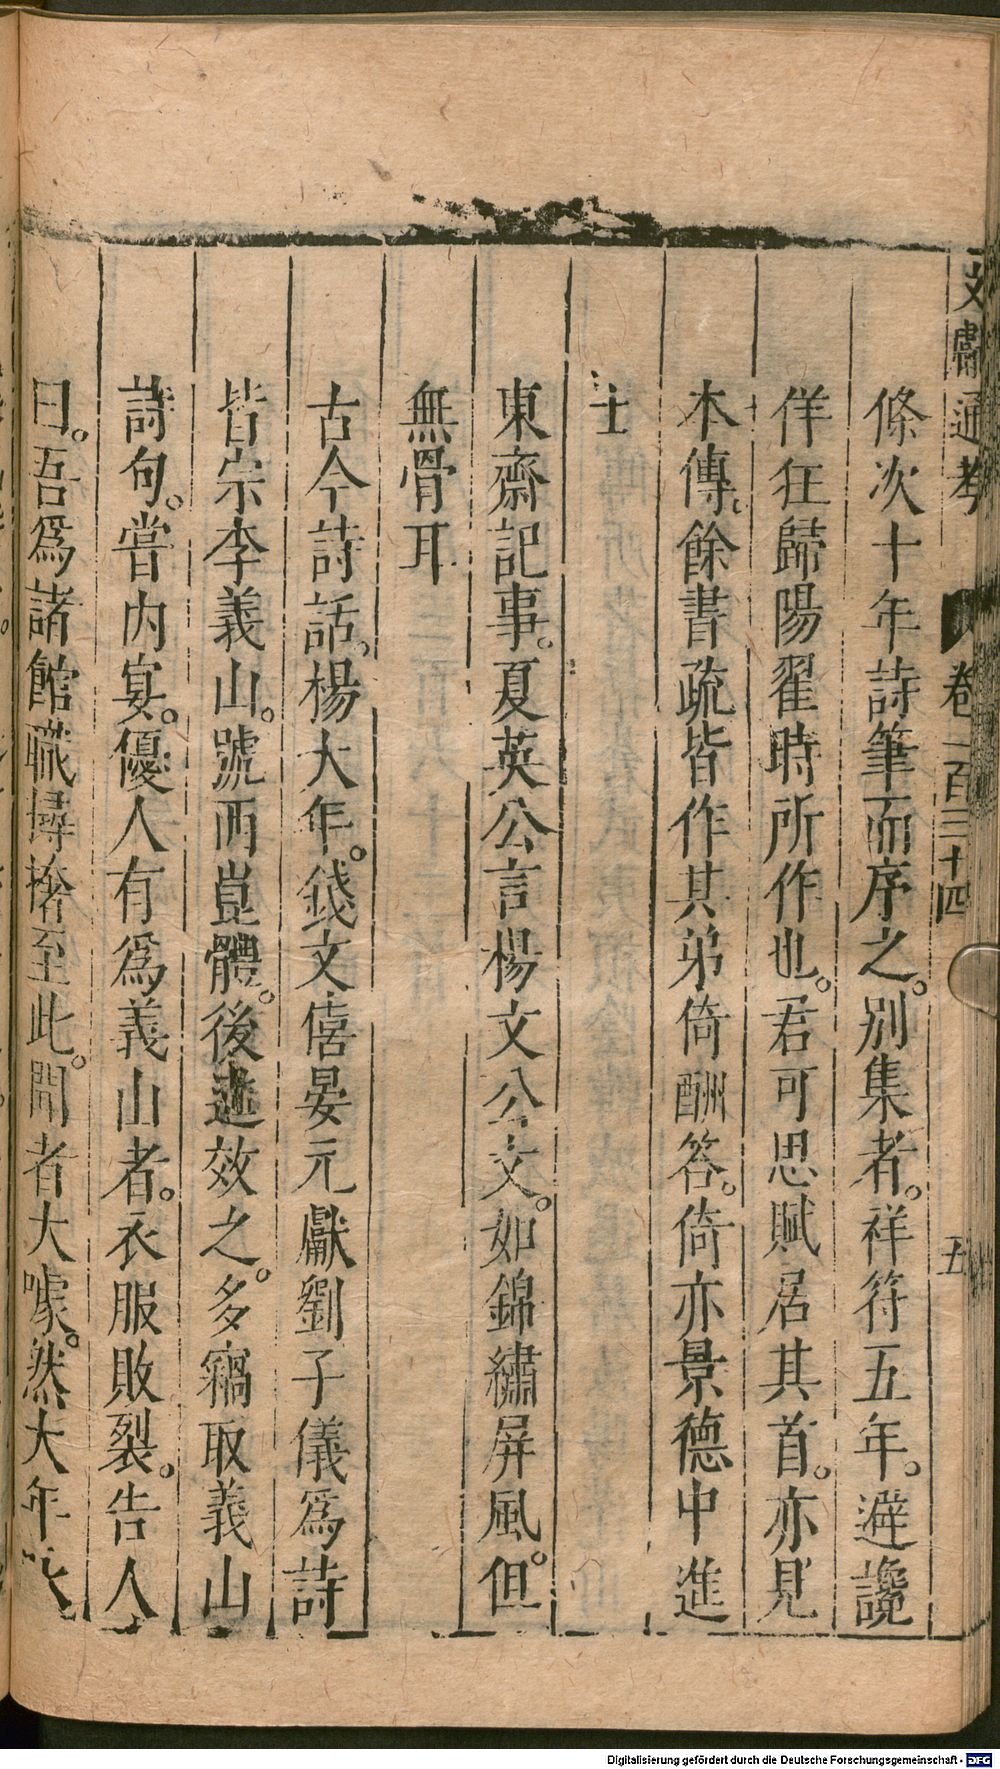 文獻通考 卷二百三十四 五
條次十年詩筆而序之。別集者。祥符五年。避讒
佯狂歸陽翟時所作也。君可思賦居其首。亦見
本傳。餘書疏皆作其弟倚酬答。倚亦景德中進
士
東齋記事。夏英公言楊文公文。如錦繡屏風。但
無骨耳
古今詩話。楊大年。錢文僖晏元獻劉子儀爲詩
皆宗李義山。號西崑體。後進效之。多竊取義山
詩句。嘗內宴。優人有爲義山者。衣服敗裂。告人
曰。吾爲諸館職撏撦至此。聞者大噱。然大年
Digitalisierung gefördert durch die Deutsche Forschungsgemeinschaft - DFG